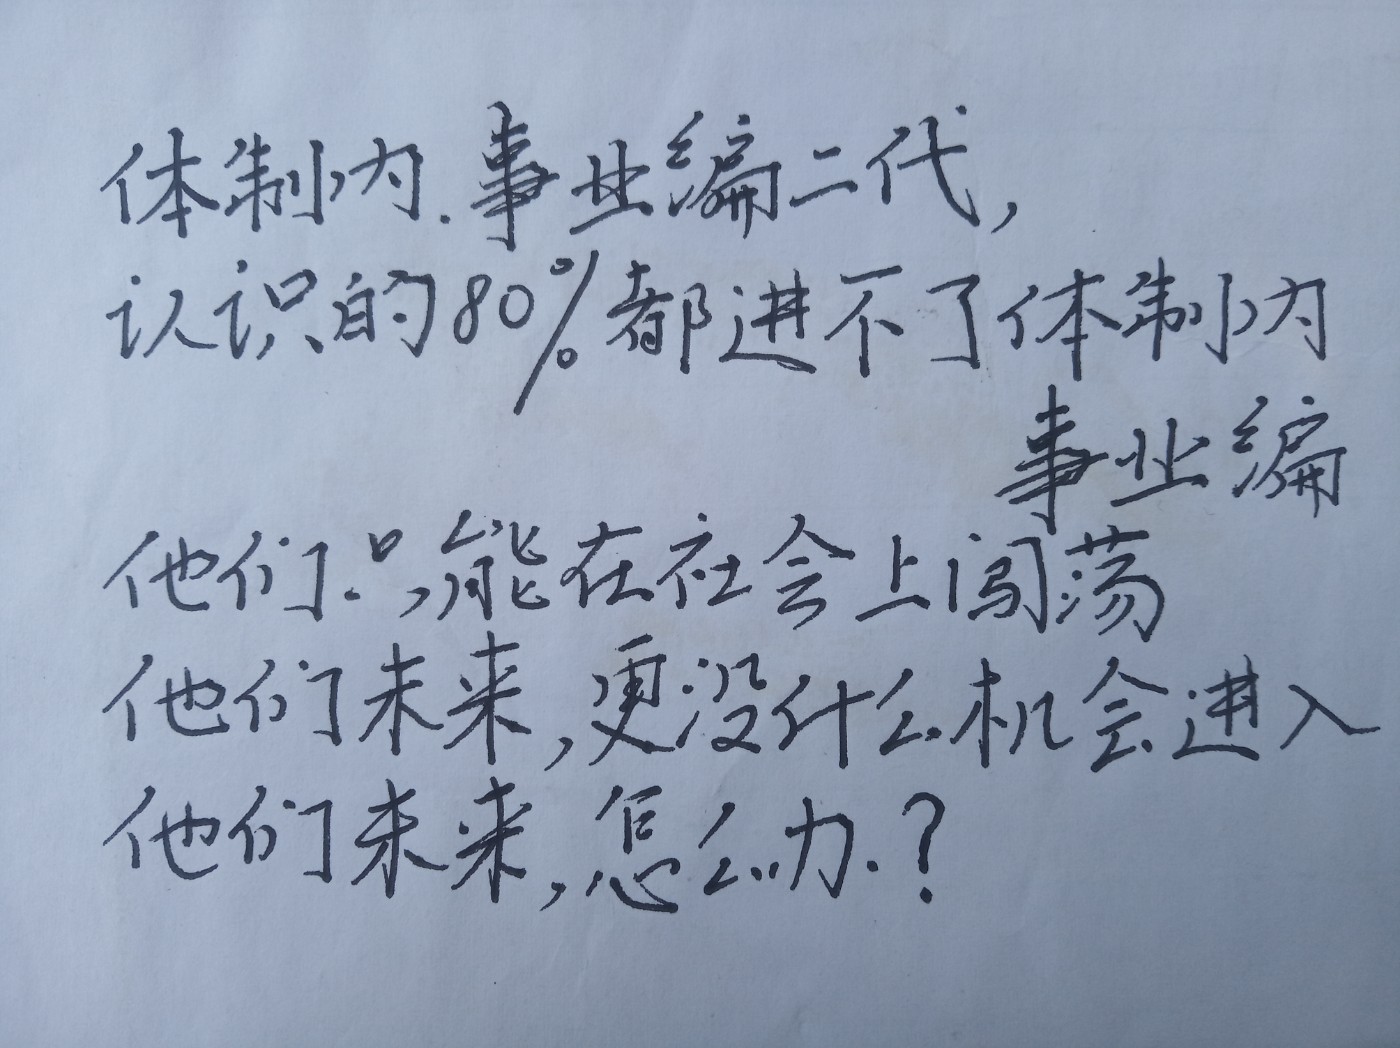 体制内.事业编二代,
认识的80%都进不了体制内
事业编
他们只能在社会上闯荡
他们未来,更没什么机会进入
他们未来,怎么办?